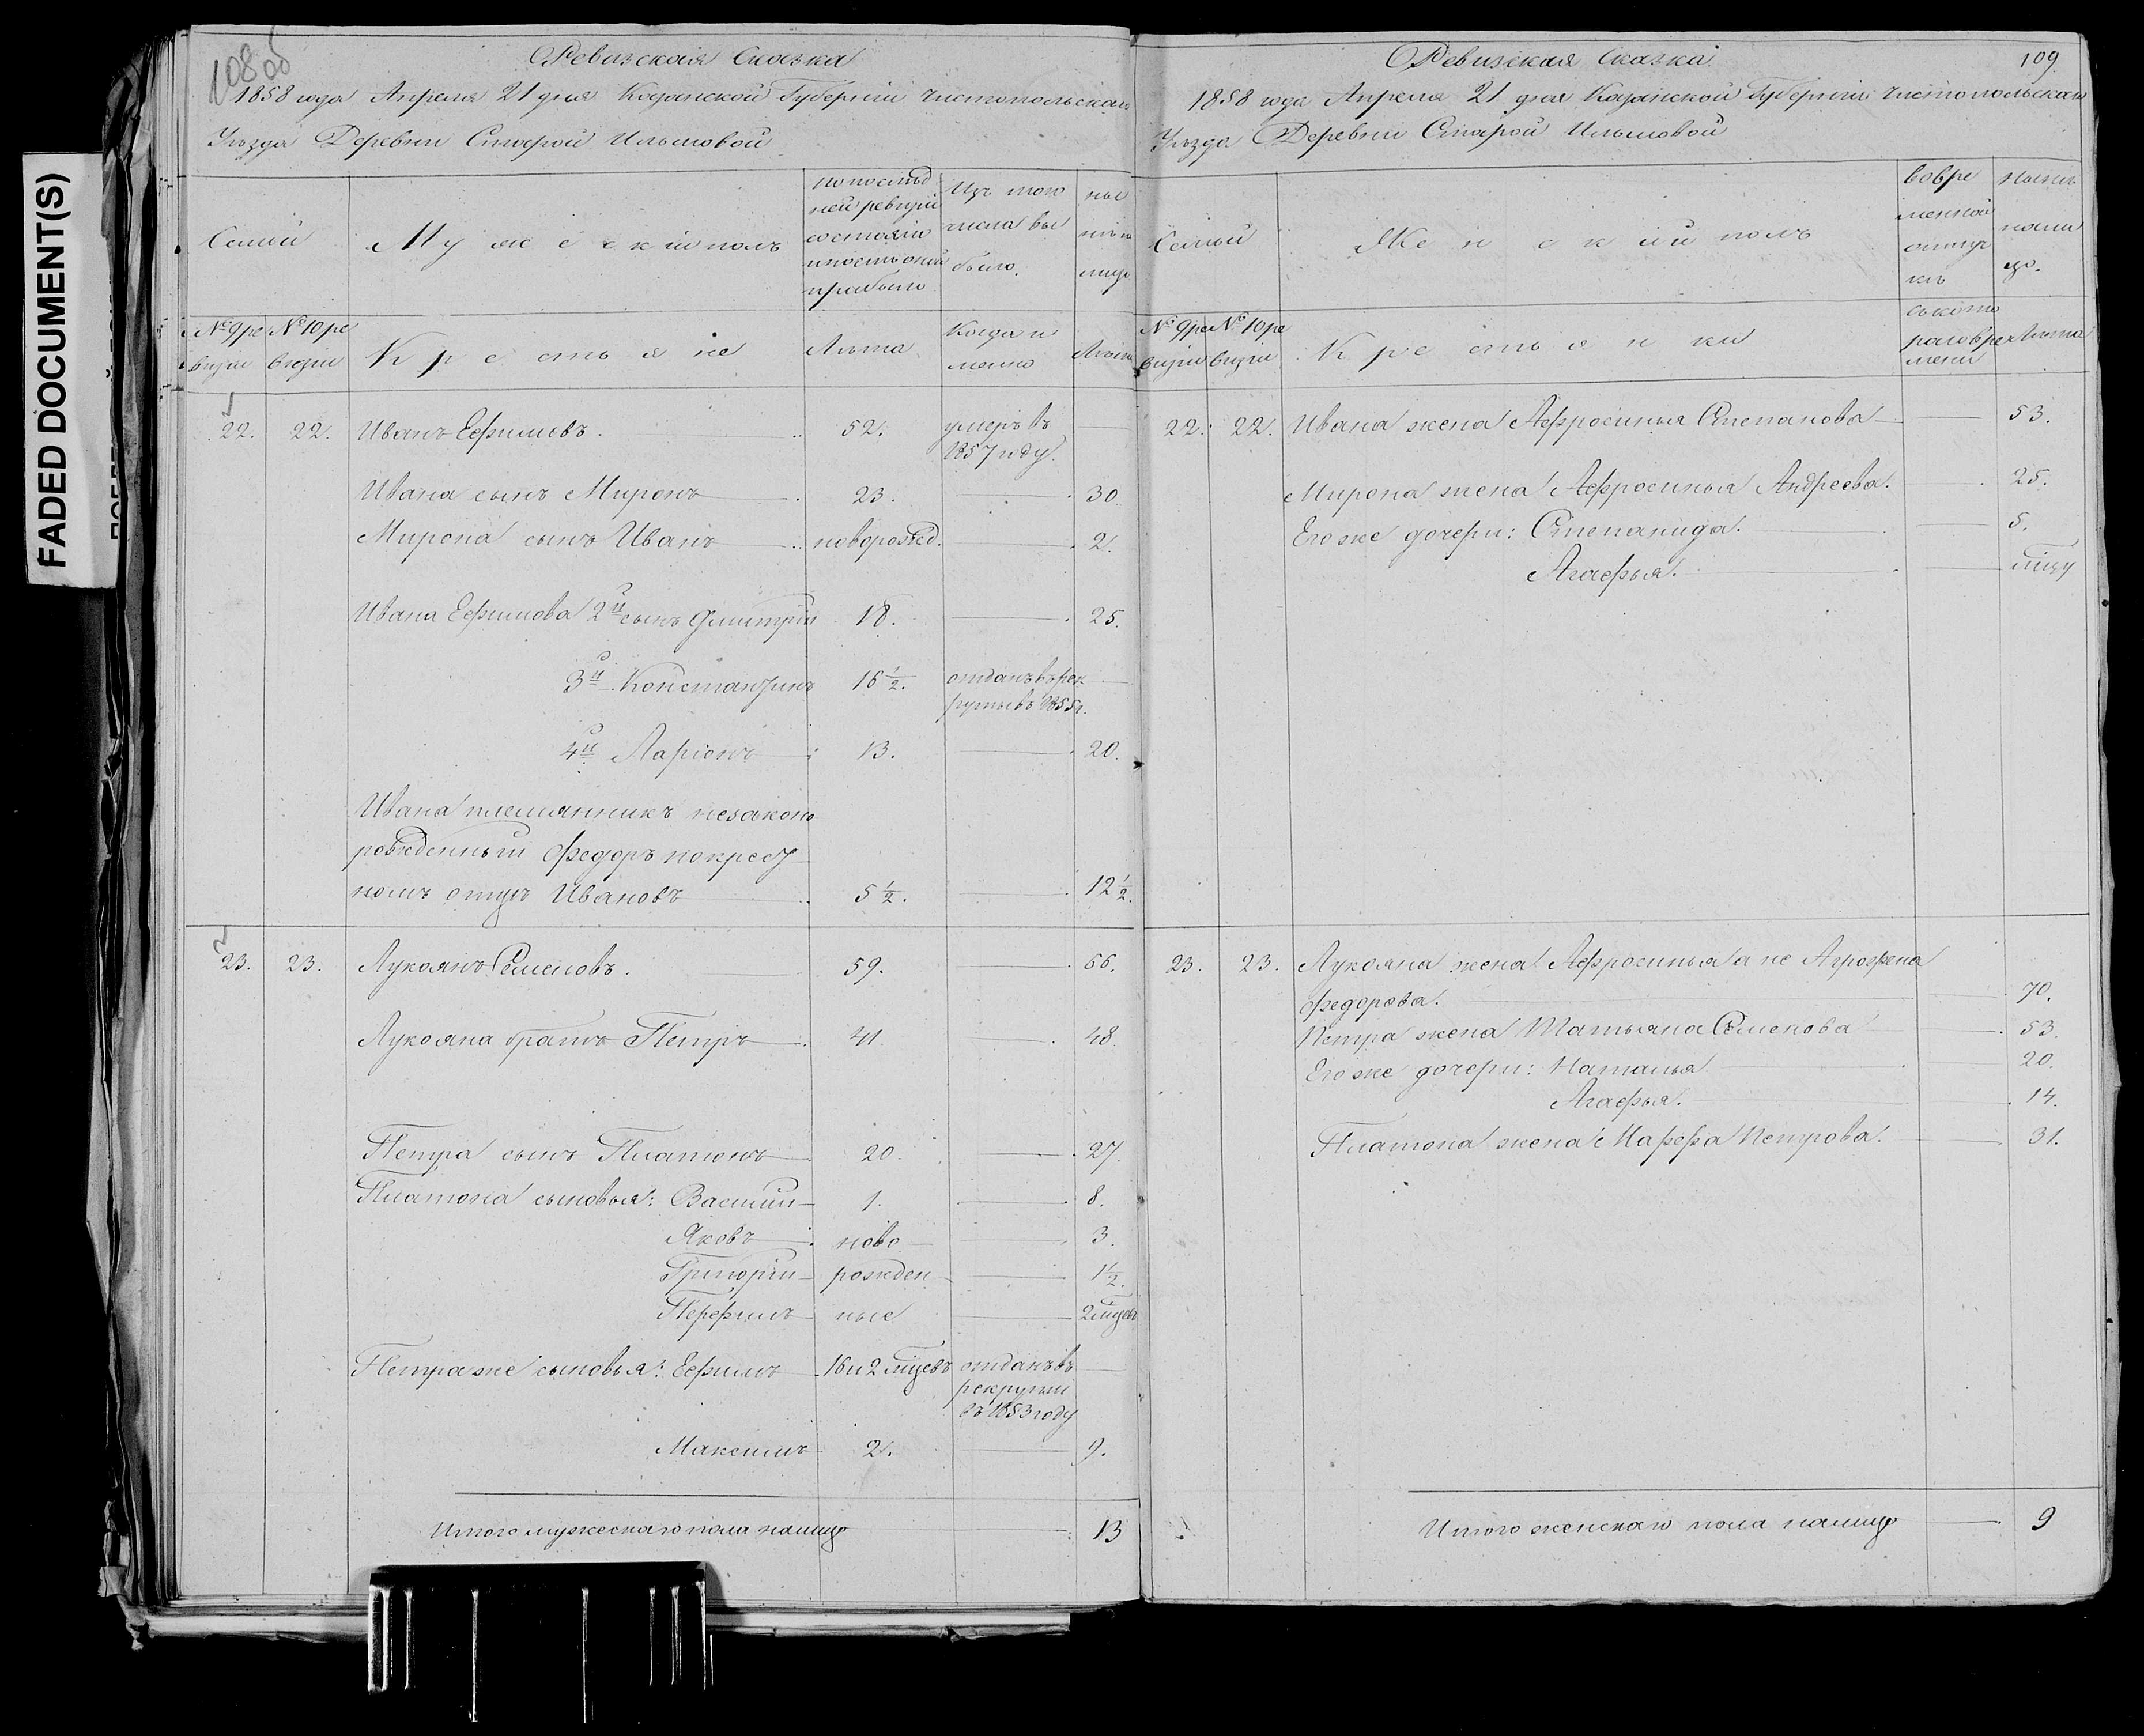 FADED DOCUMENT(S)
108об
Ревизская Сказка
1858 года Апреля 21 дня Казанской Губернiи Чистопольскаго
Уѣзда Деревни Старой Ильмовой
Семьи
Мужескiй полъ
по послѣд
ней ревизiи
состояло
и послѣ оной
прибыло
Изъ того
числа вы
было.
ныне
на
лицо
№ 9 ре
визiи
№ 10 ре
визiи
Крестьяне
Лѣта
Когда и
менно
Лѣта
22. 22. Иванъ Ефимовъ. 52. умеръ въ
1857 году.
Ивана сынъ Миронъ 23. 30
Мирона сынъ Иванъ новорожд. 2.
Ивана Ефимова 2й сынъ Дмитрiй 18. 25.
3й Константинъ 16 1/2. отданъ въ рек
руты въ 1855 г.
4й Ларiонъ 13. 20.
Ивана племянникъ незаконо
рожденный Федоръ по крест
номъ отцѣ Ивановъ 5 1/2. 12 1/2.
23. 23. Лукоянъ Семеновъ. 59. 66.
Лукояна братъ Петръ 41. 48.
Петра сынъ Платонъ 20. 27.
Платона сыновья: Василiй 1. 8.
Яковъ ново 3.
Григорiй рожден 1 1/2.
Перфилъ ные 2 мцевъ
Петра же сыновья: Ефимъ 16 и 2 мцевъ отданъ въ
рекруты
въ 1853 году
Максимъ 2. 9.
Итого мужескаго пола налицо 13
Ревизская Сказка 109
1858 года Апреля 21 дня Казанской Губернiи Чистопольскаго
Уѣзда Деревни Старой Ильмовой
Семьи
Женскiй полъ
во вре
менной
отлуч
кѣ
Нынѣ
нали
цо.
№ 9 ре
визiи
№ 10 ре
визiи
Крестьянки
съ кото
раго вре
мени
Лѣта
22. 22. Ивана жена Афросинья Степанова 53.
Мирона жена Афросинья Андреева. 25.
Его же дочери: Степанида. 5.
Агафья. мцу
23. 23. Лукояна жена Афросинья а не Аграфена
Федорова. 70.
Петра жена Татьяна Семенова 53.
Его же дочери: Наталья 20.
Агафья. 14.
Платона жена Марфа Петрова. 31.
Итого женскаго пола налицо 9